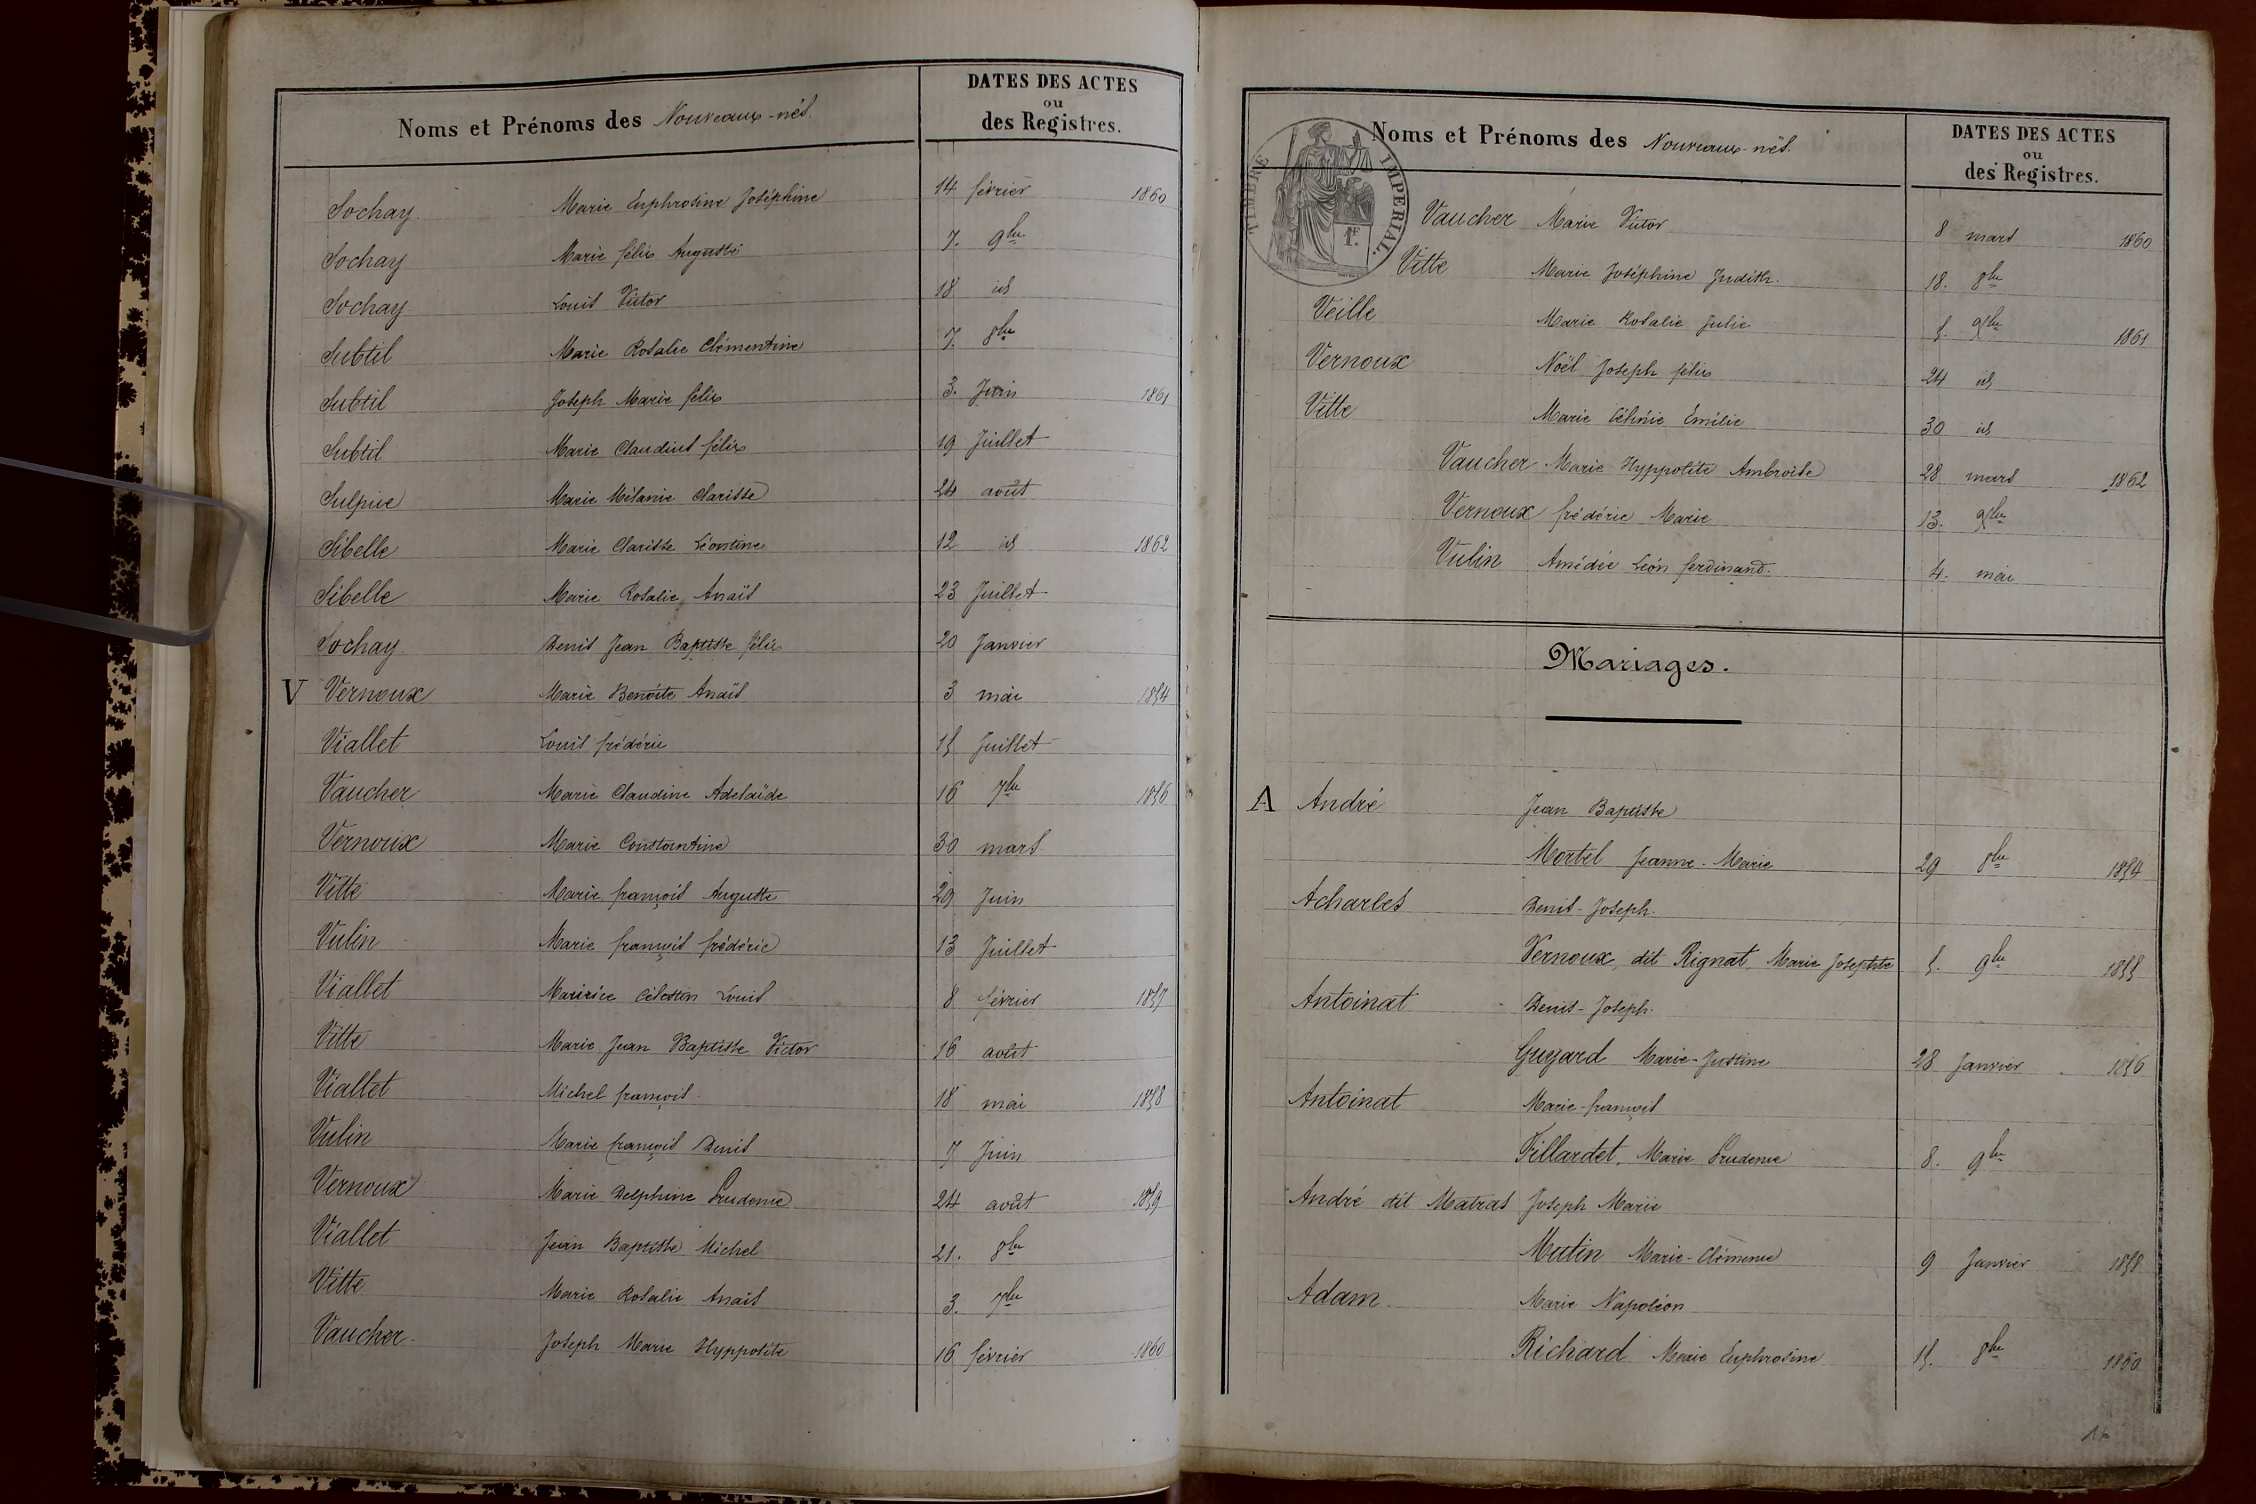 Noms et Prénoms des Nouveaux-nés. DATES DES ACTES
ou
des Registres.
Sochay Marie Euphrosine Joséphine 14 février 1860
Sochay Marie félix Auguste 7. 9bre
Sochay Louis Victor 18 id
Subtil Marie Rosalie Clémentine 7. 8bre
Subtil Joseph Marie félix 3. Juin 1861
Subtil Marie Claudius félix 19 Juillet
Sulpice Marie Mélanie Clarisse 24 août
Sibelle Marie Clarisse Léontine 12 id 1862
Sibelle Marie Rosalie Anaïs 23 Juillet
Sochay Denis Jean Baptiste félix 20 Janvier
V Vernoux Marie Benoite Anaïs 3 mai 1854
Viallet Louis frédéric 15 Juillet
Vaucher Marie Claudine Adelaïde 16 7bre 1856
Vernoux Marie Constantine 30 mars
Vitte Marie françois Auguste 29 Juin
Vulin Marie françois frédéric 13 Juillet
Viallet Maririce Célestin Louis 8 février 1857
Vitte Marie Jean Baptiste Victor 16 août
Viallet Michel françois 18 mai 1858
Vulin Marie françois Denis 7 Juin
Vernoux Marie Delphine Prudence 24 août 1859
Viallet Jean Baptiste Michel 21. 8bre
Vitte Marie Rosalie Anaïs 3. 7bre
Vaucher Joseph Marie Hyppolite 16 février 1860
Noms et Prénoms des Nouveaux-nés. DATES DES ACTES
ou
des Registres.
TIMBRE IMPERIAL.
1F.
Vaucher Marie Victor 8 mars 1860
Vitte Marie Joséphine Judith. 18. 8bre
Veille Marie Rosalie Julie 5. 9bre 1861
Vernoux Noël Joseph félix 24 id
Vitte Marie Célinie Emilie 30 id
Vaucher Marie Hyppolite Ambroise 28 mars 1862
Vernoux frédéric Marie 13. 9bre
Vulin Amédée Léon ferdinand. 4. mai
Mariages.
A André Jean Baptiste
Mortel Jeanne-Marie 29 8bre 1854
Acharles Denis-Joseph.
Vernoux dit Rignat Marie Josephte 5. 9bre 1855
Antoinat Denis-Joseph.
Guyard Marie-Justine 28 Janvier 1856
Antoinat Marie-françois
Fillardet, Marie Prudence 8. 9bre
André dit Matras Joseph Marie
Mutin Marie-Clémence 9 Janvier 1858
Adam. Marie Napoléon
Richard Marie Euphrosine 15. 8bre 1860